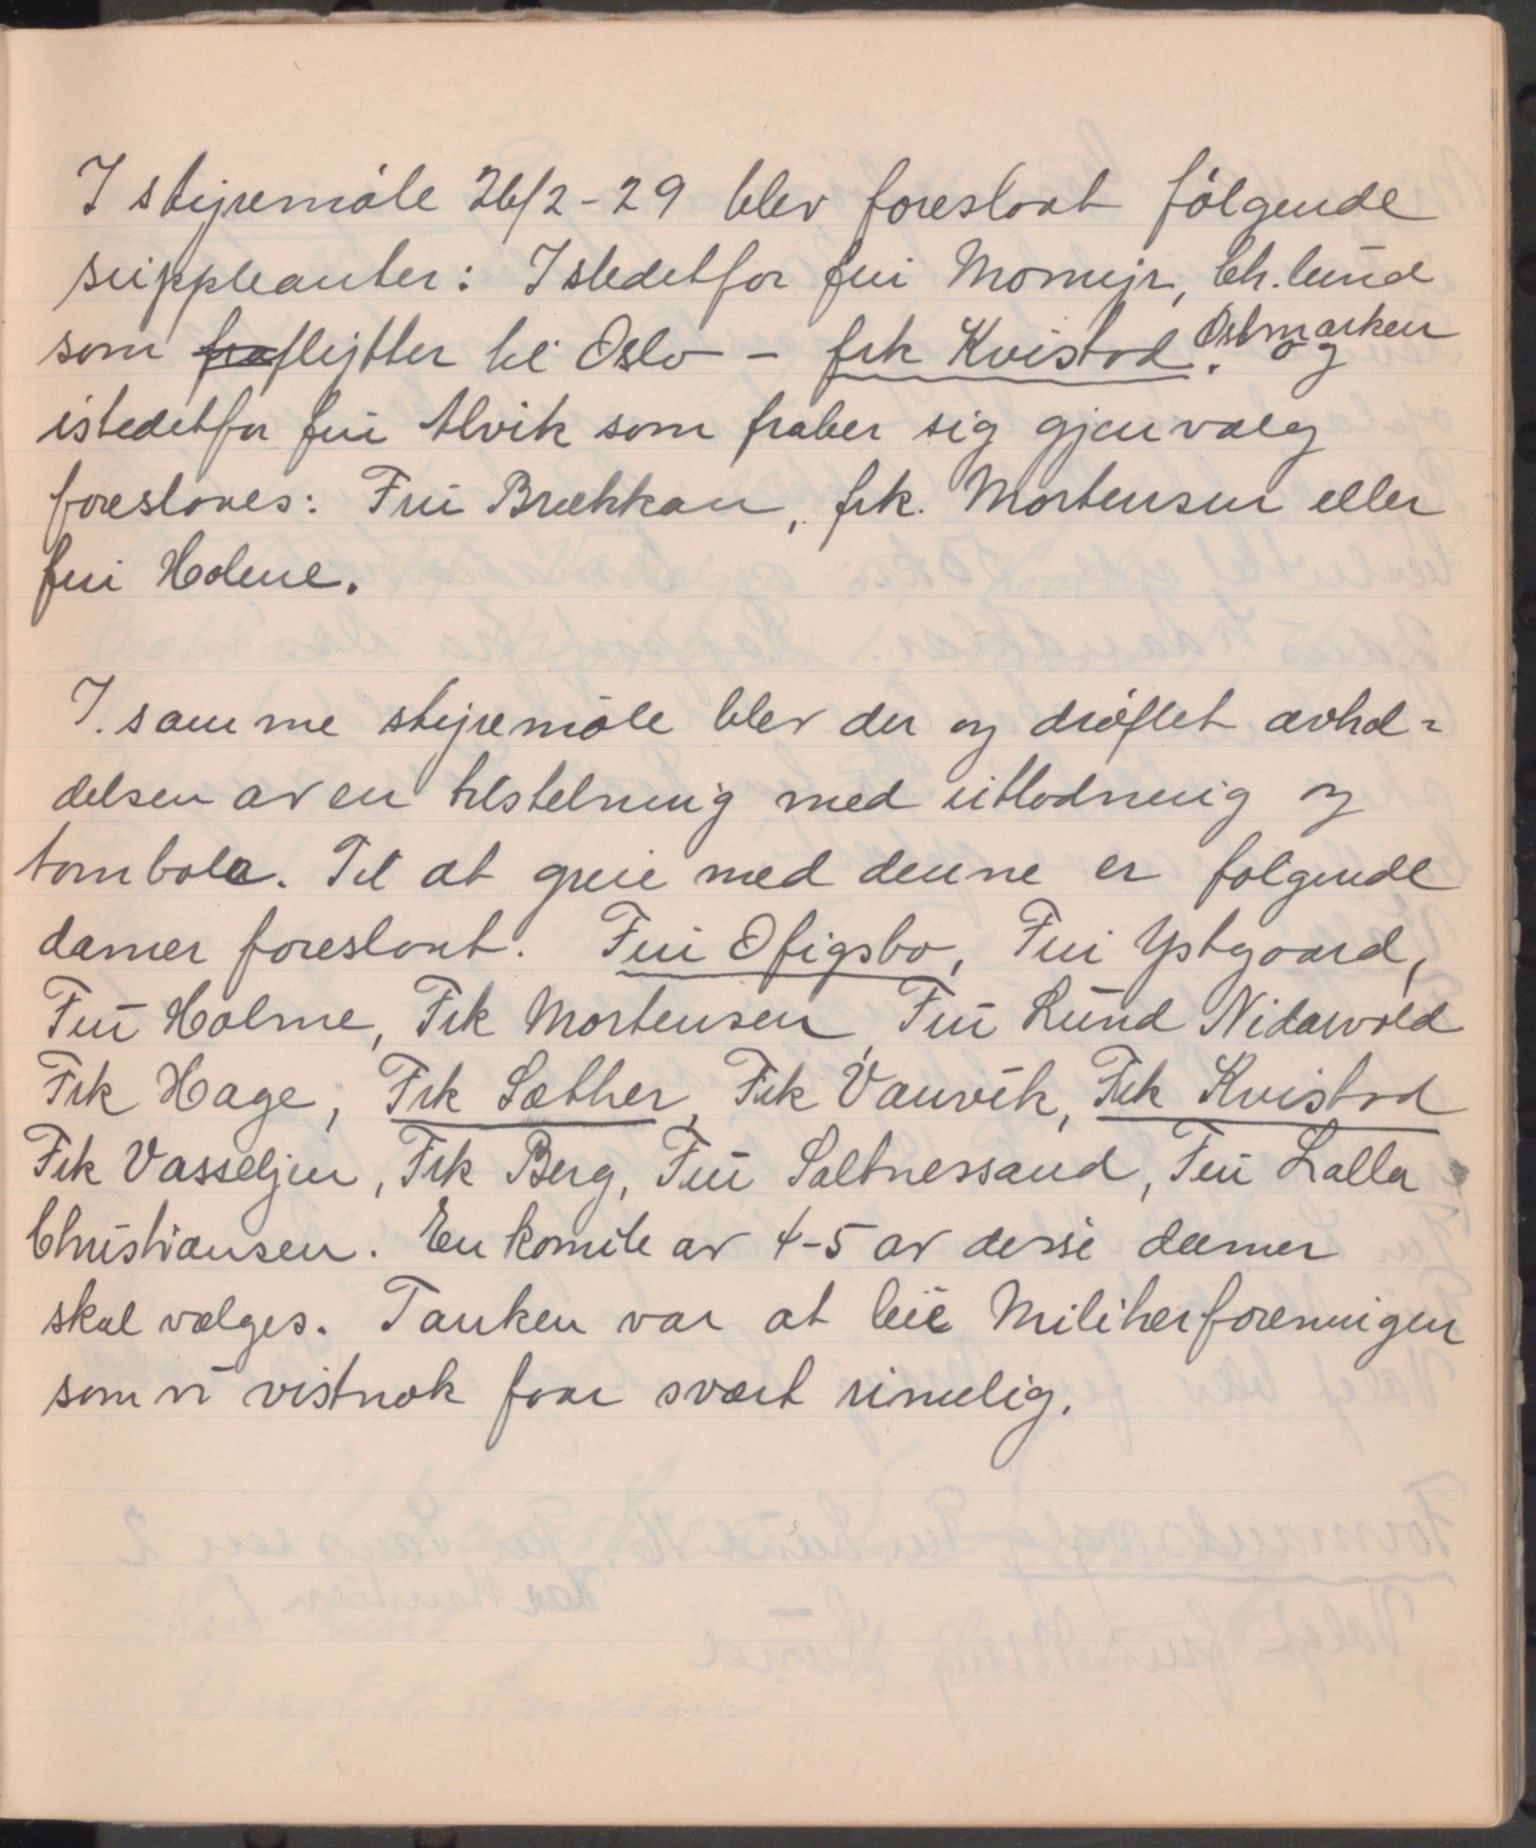 I styremöte 26/2-29 blev foreslaat følgende
suppleanter: Istedetfor fru Momyr, Ch. lund
som fraflytter til Oslo - frk Kvistad. Östmarken og
istedetfor fru Alvik som fraber sig gjenvalg
foreslaaes: Fru Brækkan, frk. Mortensen eller
fru Holme.
I samme styremöte blev der og drøftet avhol=
delsen av en tilstelning med utlodning og
tombola. Til at greie med denne er følgende
damer foreslaat. Fru Ofigsbo, Fru Ystgaard,
Fru Holme, Frk Mortensen, Fru Lund Nidarvold
Frk Hage, Frk Sæther, Frk Vanvik, Frk Kvistad
Frk Vasseljen, Frk Berg, Fru Saltnessand, Fru Lalla
Christiansen. En komite av 4-5 av disse damer
skal vælges. Tanken var at leie Militærforeningen
som vi vistnok faar svært rimelig.